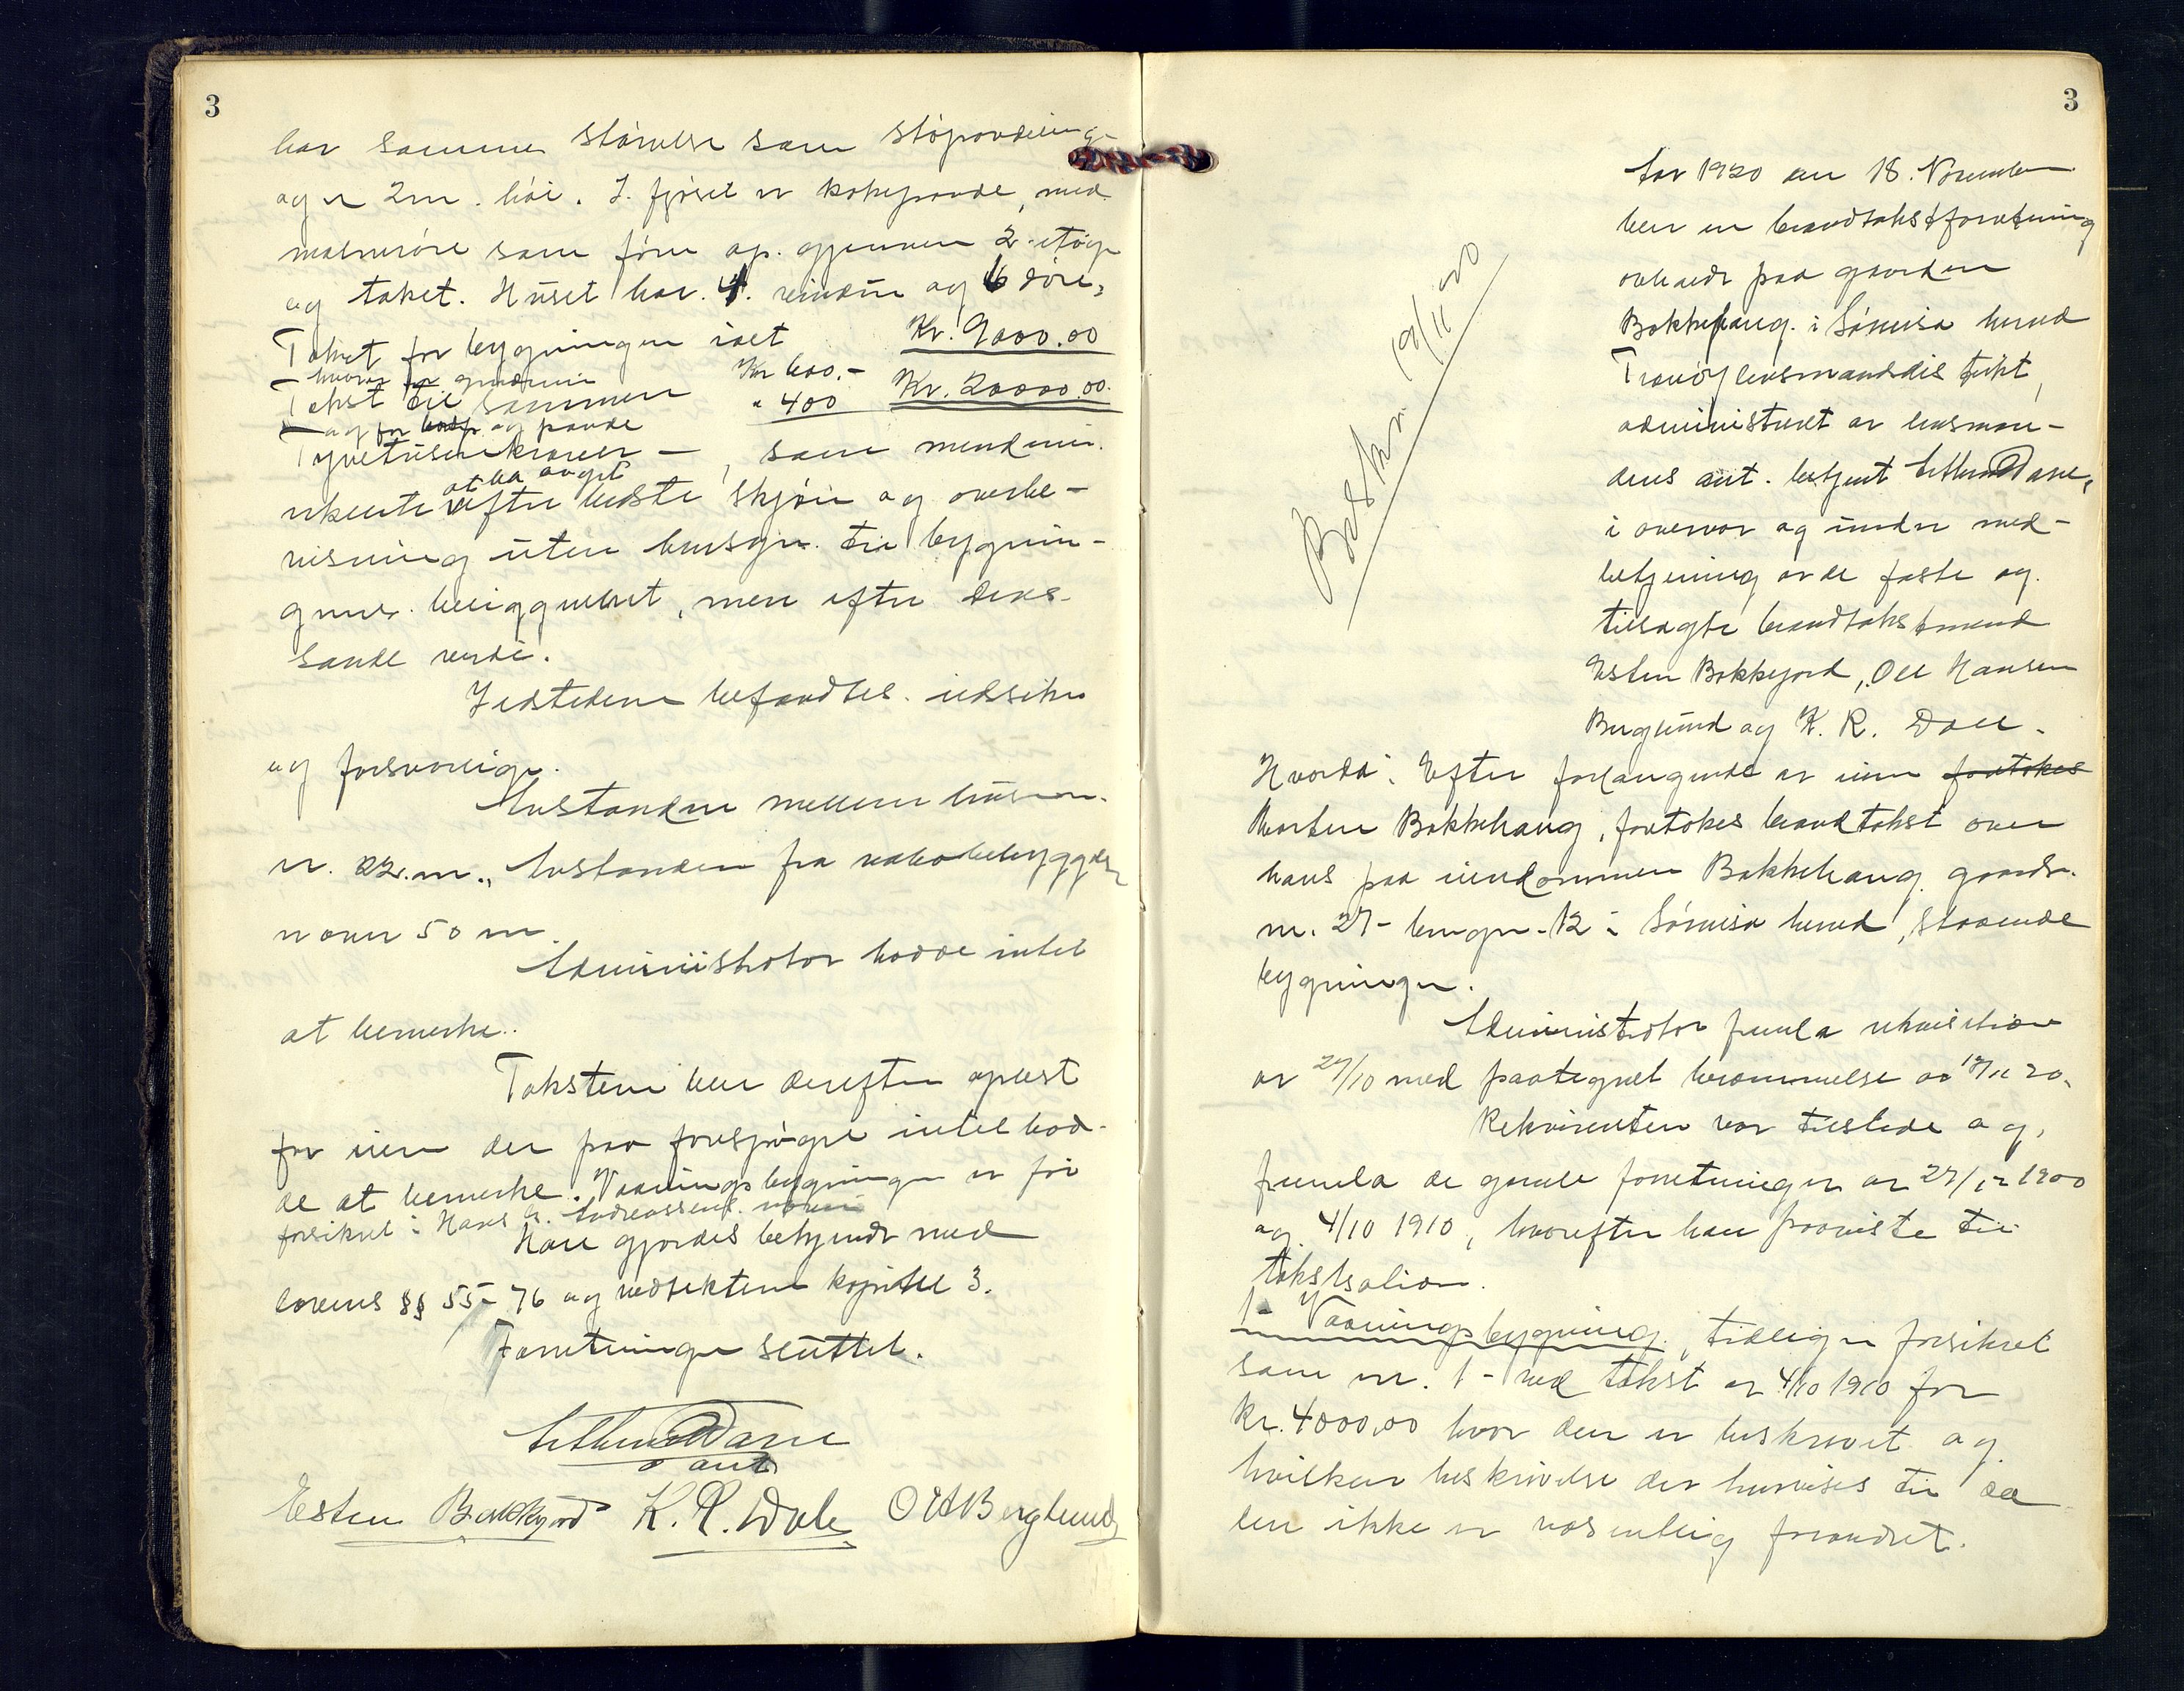 3
har samme størrelse som støpavdeling
og er 2 m. høi. I fjøset er kokepande, med
malmrøre som føre op. gjennem 2. etage
og taket. Huset har. 4. vinduer og 6 døre,
Takst for bygningen ialt Kr. 9000.00
hvorav for grundmur Kr 600.-
Takst til sammen Kr. 20000.00.
og for og pande " 400
Tyvetusenkroner — , som mendene.
at ha avgit
erkjente efter bedste skjøn og overbe-
visning uten hensyn til bygnin-
genes beliggenhet, men efter deres
sande verdi.
Ildstedene befandtes. ildsikre
og forsvarlige.
Avstanden mellem husene.
er. 22. m., Avstanden fra nabobebyggelse
er over 50 m.
Administrator hadde intet
at bemerke.
Taksten blev derefter oplæst
for eier der paa forespørgsel intet had-
de at bemerke. Vaaningsbygningen er før
forsikret i Hans A. Andreassens navn
Han gjordes bekjendt med
lovens §§ 55-76 og vedtektene kapitel 3.
Forretningen sluttet.
Dane
ant
Esten Bakkejord K. R. Dale O H Berglund
3
Besk. 19/11 20
Aar 1920 den 18. November
blev en brandtakstforretning
avholdt paa gaarden
Bakkehaug i Sørreisa herred
Tranøy lensmandsdistrikt,
administreret av lensman-
dens aut. betjent Dane,
i overvær og under med-
betjening av de faste og.
tilsagte brandtakstmænd
Esten Bakkejord, Ole Hansen
Berglund og K. R. Dale.
Hvorda: Efter forlangende av eier foretokes
Morten Bakkehaug, foretokes brandtakst over
hans paa eiendommen Bakkehaug gaards-
nr. 27- bruksnr. 12 i Sørreisa herred, staaende
bygninger.
Administrator fremla rekvisition
av 27/10 med paategnet berammelse av 12/11 20.
Rekvirenten var tilstede og,
fremla de gamle forretninger av 27/12 1900
og 4/10 1910, hvorefter han paaviste til
takstsation.
1- Vaaningsbygning, tidligere forsikret
som nr. 1- ved takst av 4/10 1910 for
Kr. 4000,00 hvor den er beskrevet og
hvilken beskrivelse der henvises til da
den ikke er væsentlig forandret.